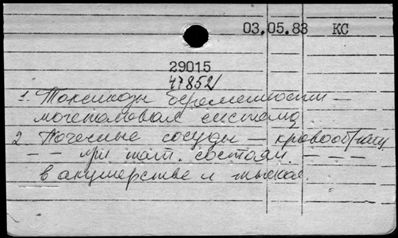 03.05.83 КС
29015
47852
1. Токсикозы беременности –
мочеполовая система
2 Почечные сосуды – кровообращ
– – при пат. состоян. – – –
в акушерстве и